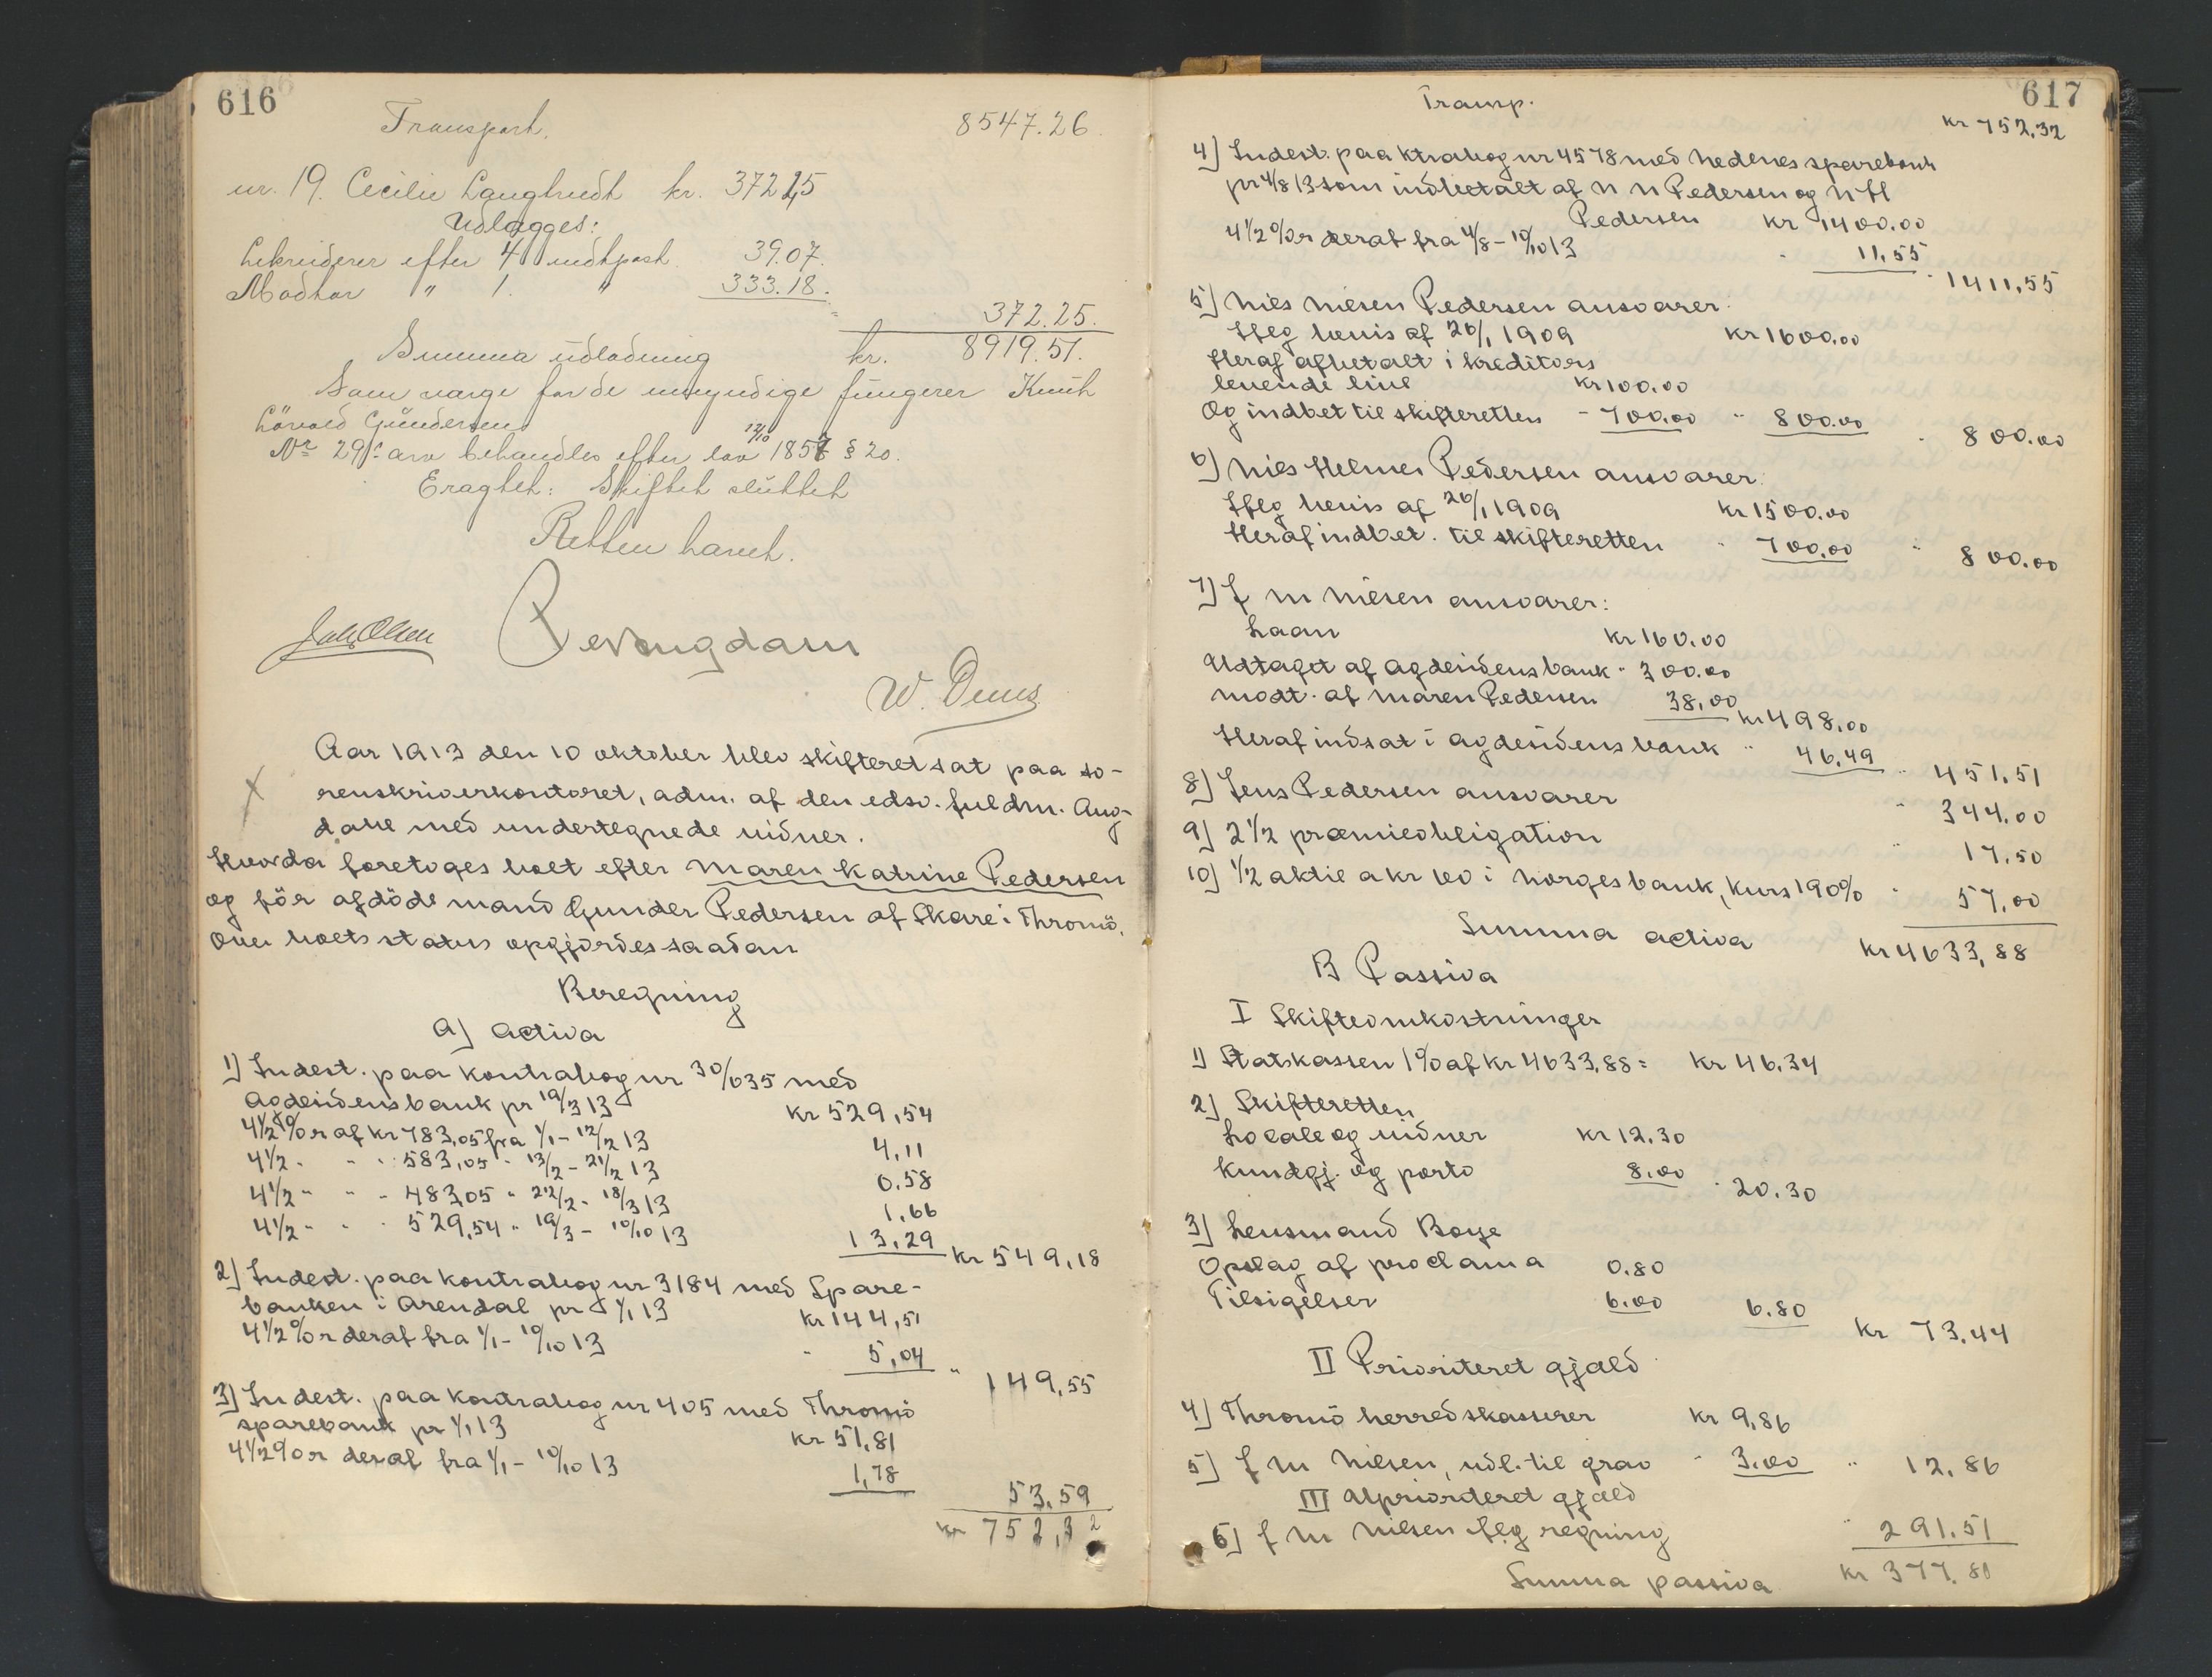 616
Transport. 8547.26
nr. 19. Cecilie Langbredt kr. 372 25
Udlægges:
efter 4 indtpost 39.07.
Modtar " 1. " 333.18.
372.25.
Summa udlodning kr. 8919.51.
Som værge for de umyndige fungerer Knut
Lövold Gundersen
Nr 29s arv behandles efter lov 12/10 1857 § 20.
Eragtet: Skiftet sluttet
Retten hævet.
W. Deues
Aar 1913 den 10 oktober blev skifteret sat paa so-
renskriverkontoret, adm. af den edsv. fuldm. Aug-
dahl med undertegnede vidner.
Hvorda foretoges boet efter Maren Katrine Pedersen
og før afdöde mand Gunder Pedersen af Skare i Thromö.
Over boets status opgjordes saadan
Beregning
A) Activa
1) Indest. paa kontrabog nr 30/635 med
Agdesidens bank pr 19/3 13 kr 529,54
4 1/2 % r af kr 783,05 fra 1/1 - 12/2 13 4,11
4 1/2 " " " 583,05 " 13/2 - 21/2 13 0.58
4 1/2 " " " 483,05 " 22/2 - 18/3 13 1.66
4 1/2 " " " 529,54 " 19/3 - 10/10 13 13,29 kr 549,18
2) Indest. paa kontrabog nr 3184 med Spare-
banken i Arendal pr 1/1 13 kr 144,51
4 1/2 % r deraf fra 1/1 - 10/10 13 " 5,04 " 149,55
3) Indest. paa kontrabog nr 405 med Thromö
sparebank pr 1/1 13 kr 51,81
4 1/2 % r deraf fra 1/1 - 10/10 13 1,78
53,59
kr 752,32
617
Transp. kr 752,32
4) Indest. paa ktrabog nr 4578 med Nedenes sparebank
pr 4/8 13 som indbetalt af N N Pedersen og N H
Pedersen kr 1400.00
4 1/2 % r deraf fra 4/8 - 10/10 13 " 11,55 " 1411,55
5) Niels Nielsen Pedersen ansvarer:
Iflg bevis af 26/1 1909 kr 1600.00
Heraf afbetalt i kreditors
levende live kr 100.00
Og indbet til skifteretten - 700.00 " 800.00 " 800.00
6) Niels Helmer Pedersen ansvarer:
Iflg bevis af 26/1 1909 kr 1500.00
Heraf indbet. til skifteretten " 700.00 " 800.00
7) J M Nilsen ansvarer:
Laan kr 160.00
Udtaget af Agdesidens bank " 300.00
Modt. af Maren Pedersen 38,00 kr 498,00
Heraf indsat i Agdesidens bank " 46,49 " 451,51
8) Jens Pedersen ansvarer " 344.00
9) 2 1/2 præmieobligation " 17,50
10) 1/2 aktie a kr 60 i Norges bank, kurs 190% " 57,00
Summa activa kr 4633,88
B Passiva
I Skifteomkostninger
1) Statskassen 1% af kr 4633,88 = kr 46,34
2) Skifteretten
Locale og vidner kr 12,30
Kundgj. og porto 8.00 " 20.30
3) Lensmand Boye
Opslag af proclama 0.80
Tilsigelser 6.00 6.80 kr 73.44
II Prioriteret gjæld
4) Thromö herredskasserer kr 9,86
5) J M Nilsen, udl. til grav " 3.00 " 12,86
III Uprioriteret gjæld
6) J M Nilsen iflg regning " 291.51
Summa passiva kr 377.81